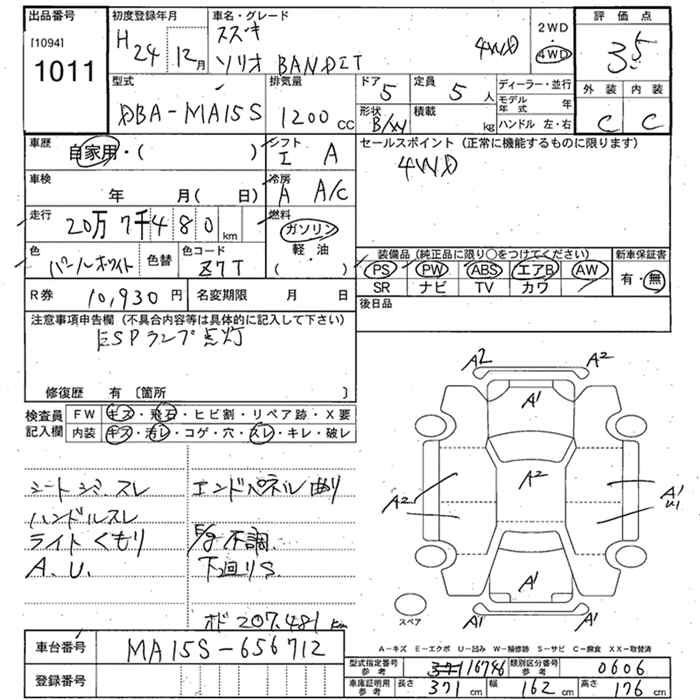 出品番号
[1094]
1011
初度登録年月
H 24 12月
車名・グレード
スズキ
ソリオ BANDIT 4WD
2WD
・
4WD
評価点
3.5
外装 内装
C C
型式
DBA-MA15S
排気量
1200 CC
ドア 5
定員 5 人
形状
積載 kg
ディーラー・並行
モデル年式 年
ハンドル 左・右
車歴
自家用・( )
シフト
I A
セールスポイント (正常に機能するものに限ります)
4WD
車検
年 月( 日)
冷房
A A/C
走行
20万7千480 km
燃料
ガソリン
軽・油
( )
色
パールホワイト
色替
色コード
Z7T
装備品 (純正品に限り〇をつけてください)
新車保証書
PS PW ABS エアB AW
SR ナビ TV カワ
有・無
R券 10,930円
名変期限 月 日
後日品
注意事項申告欄 (不具合内容等は具体的に記入して下さい)
ESPランプ点灯
修復歴 有 〔箇所 〕
検査員
記入欄
FW キズ・飛石・ヒビ割・リペア跡・X要
内装 キズ・汚レ・コゲ・穴・スレ・キレ・破レ
シートシミ、スレ
ハンドルスレ
ライトくもり
A.U.
エンドパネル曲り
E/g不調.
下回りS.
オド 207.481 km
A2 A2
A1
A2 A2 A1
U1
A1
A1 A1
スペア
A-キズ E-エクボ U-凹み W-補修跡 S-サビ C-腐食 XX-取替済
車台番号
MA15S-656712
登録番号
型式指定番号
参考
16746
類別区分番号
参考
0606
車庫証明用
参考
長さ 371 cm
幅 162 cm
高さ 176 cm